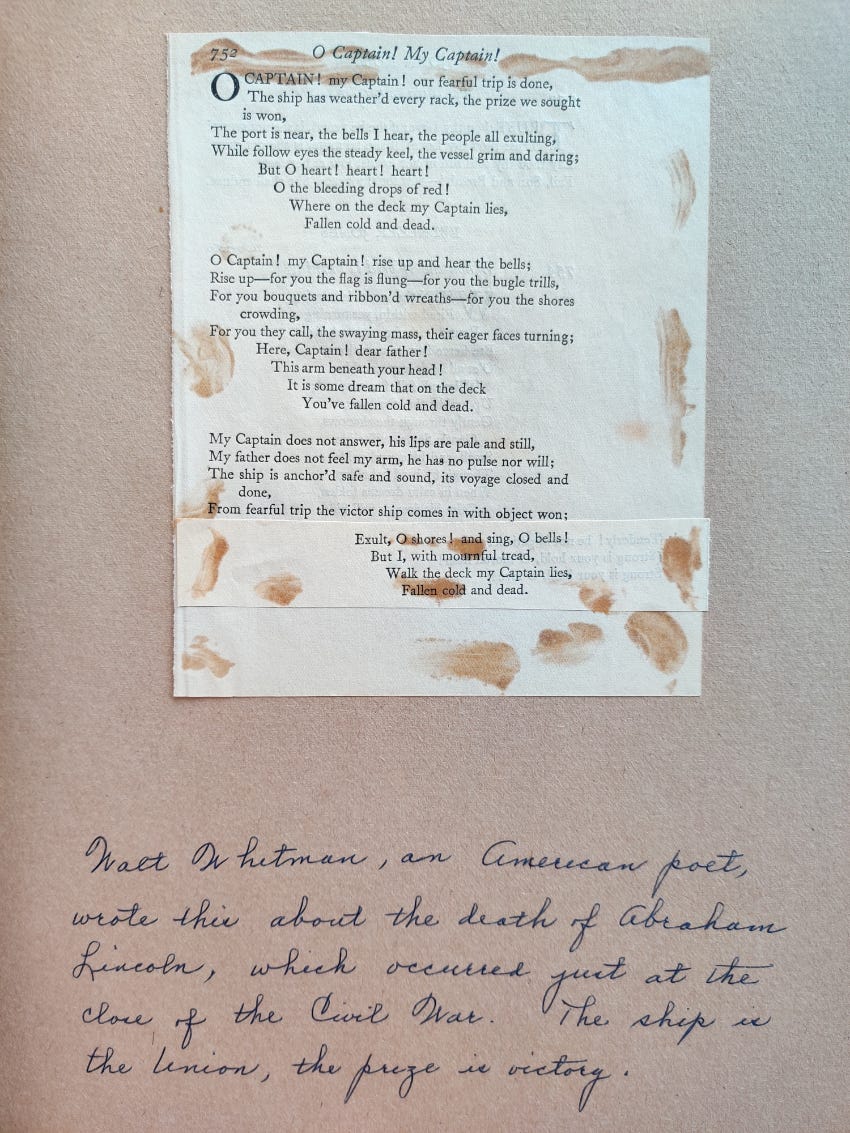 752 O Captain! My Captain!
O CAPTAIN! my Captain! our fearful trip is done,
The ship has weather'd every rack, the prize we sought
is won,
The port is near, the bells I hear, the people all exulting,
While follow eyes the steady keel, the vessel grim and daring;
But O heart! heart! heart!
O the bleeding drops of red!
Where on the deck my Captain lies,
Fallen cold and dead.
O Captain! my Captain! rise up and hear the bells;
Rise up—for you the flag is flung—for you the bugle trills,
For you bouquets and ribbon'd wreaths—for you the shores
crowding,
For you they call, the swaying mass, their eager faces turning;
Here, Captain! dear father!
This arm beneath your head!
It is some dream that on the deck
You've fallen cold and dead.
My Captain does not answer, his lips are pale and still,
My father does not feel my arm, he has no pulse nor will;
The ship is anchor'd safe and sound, its voyage closed and
done,
From fearful trip the victor ship comes in with object won;
Exult, O shores! and sing, O bells!
But I, with mournful tread,
Walk the deck my Captain lies,
Fallen cold and dead.
Walt Whitman, an American poet,
wrote this about the death of Abraham
Lincoln, which occurred just at the
close of the Civil War. The ship is
the Union, the prize is victory.